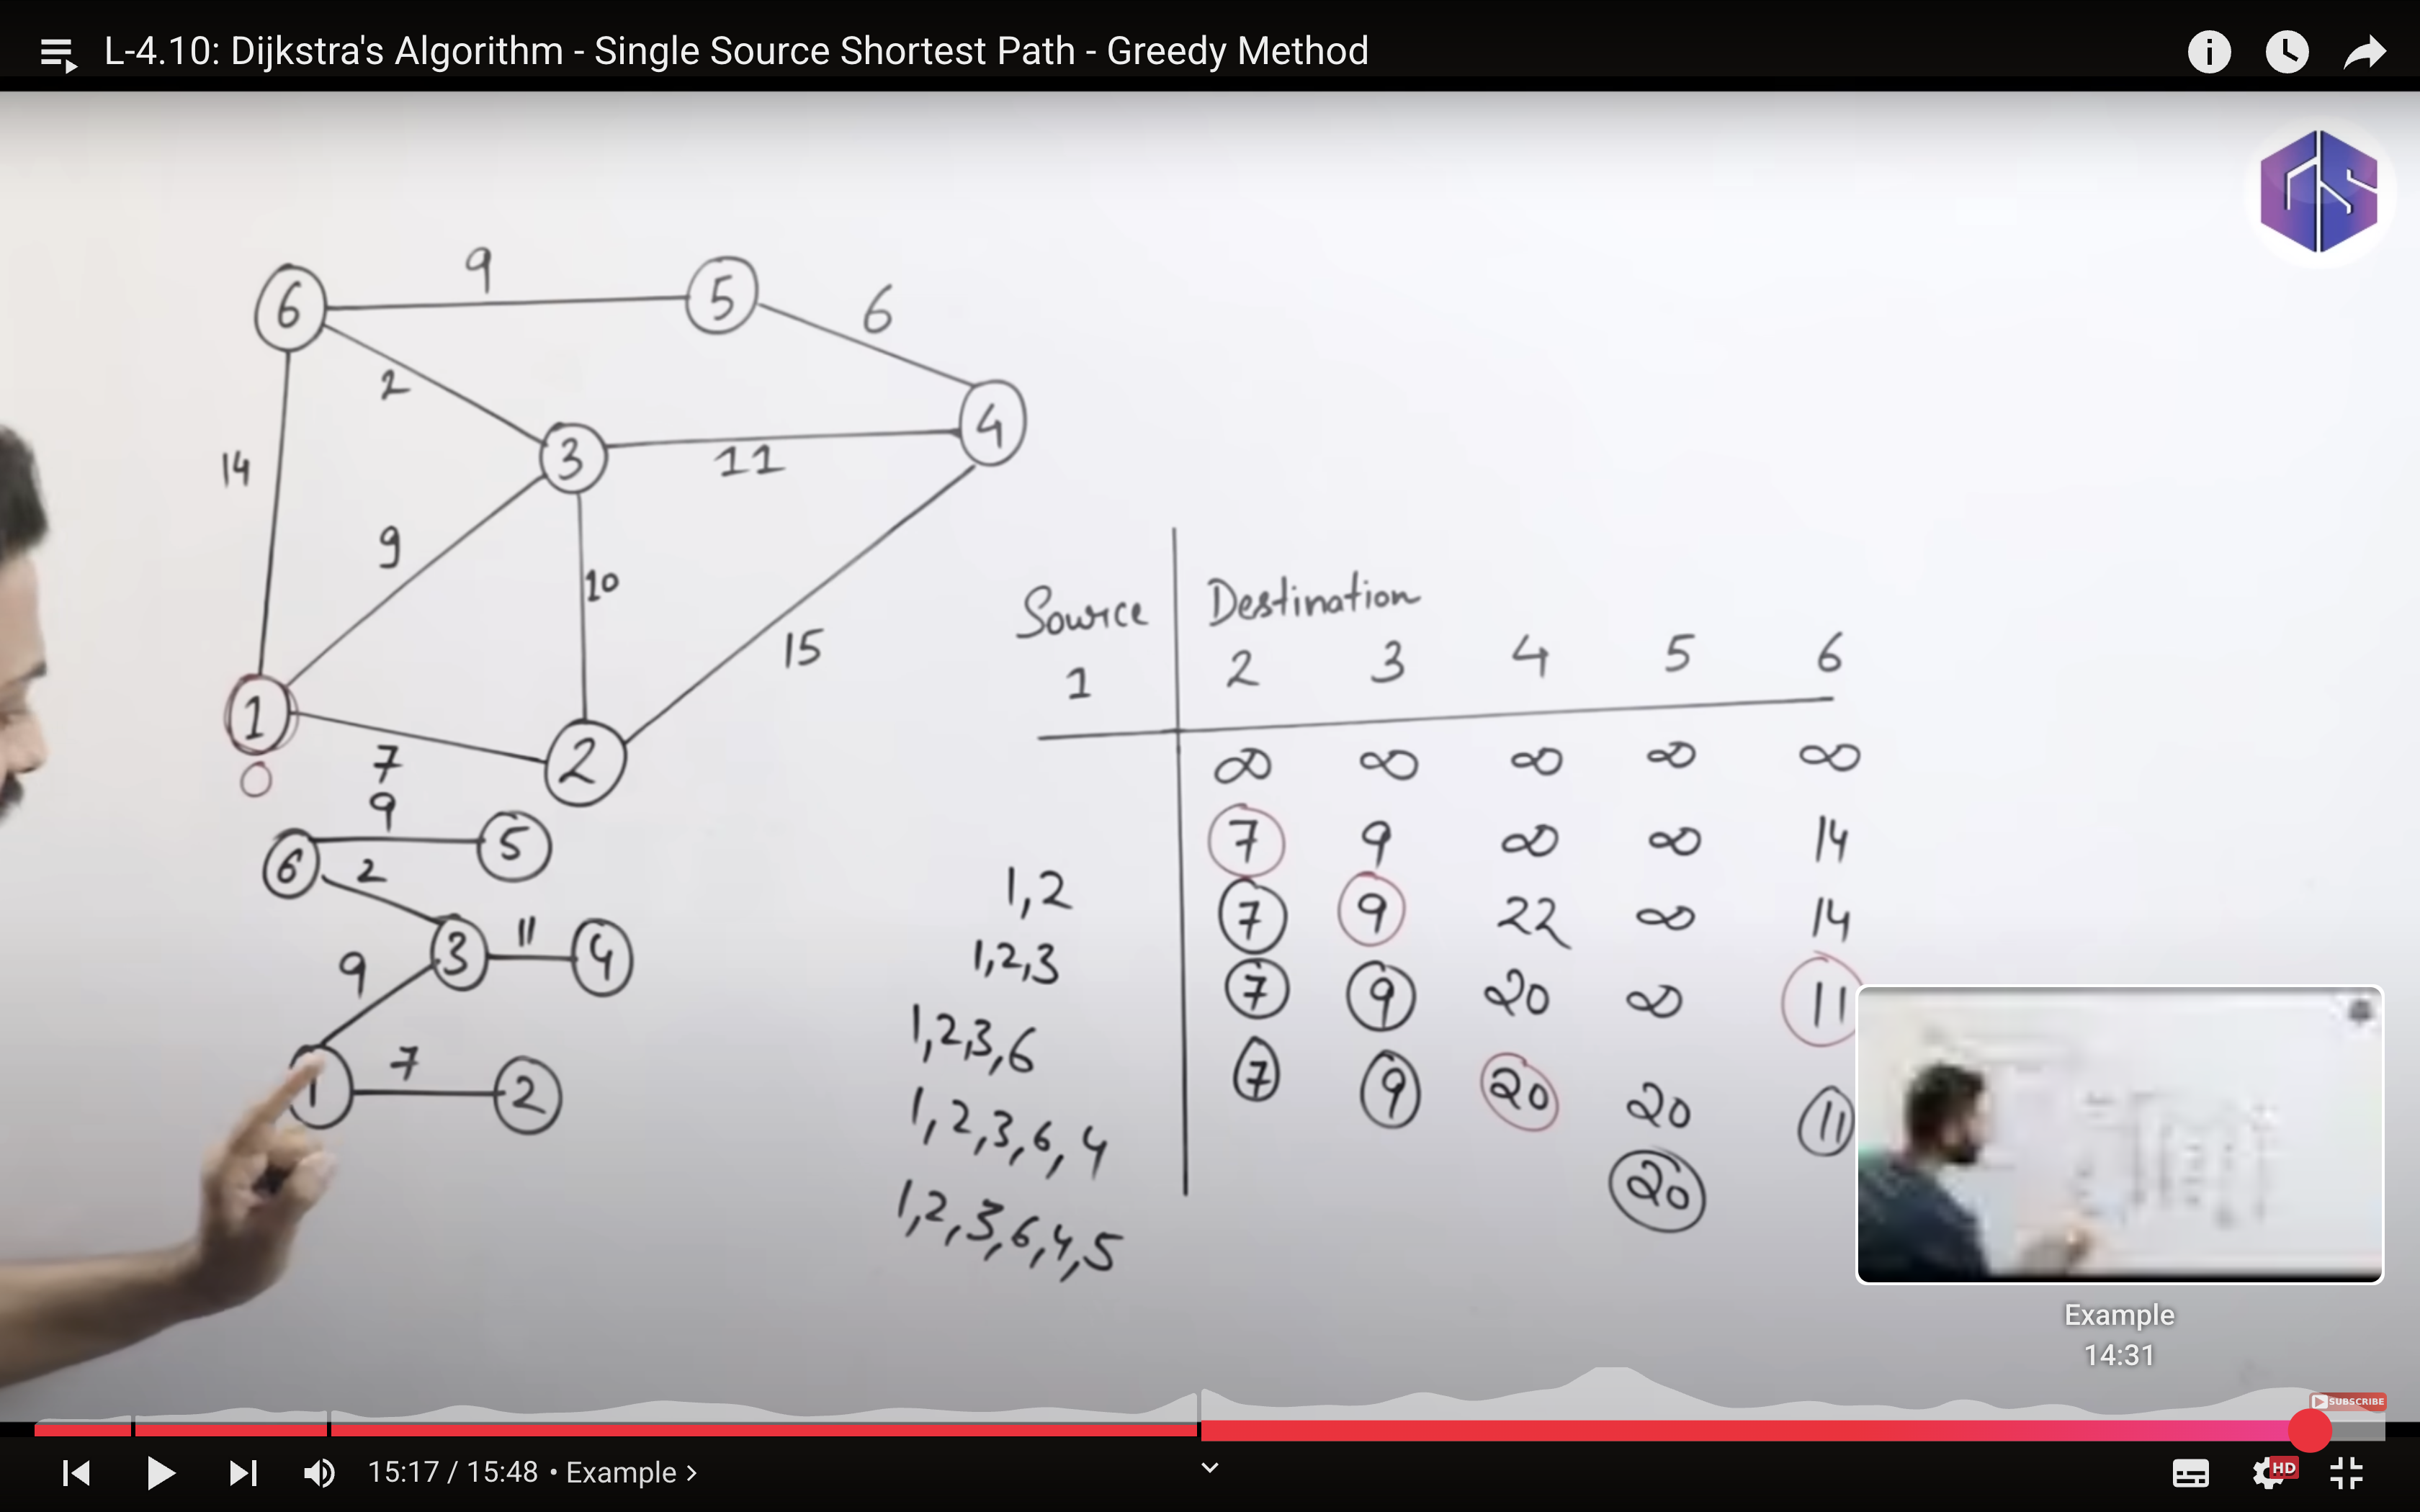 L-4.10: Dijkstra's Algorithm - Single Source Shortest Path - Greedy Method
GS
9
6
5
6
2
4
3
14
11
9
10
15
1
2
7
0
9
6
5
2
3
11
4
9
1
7
2
Source Destination
1 2 3 4 5 6
∞ ∞ ∞ ∞ ∞
7 9 ∞ ∞ 14
1,2 7 9 22 ∞ 14
1,2,3 7 9 20 ∞ 11
1,2,3,6 7 9 20 20 11
1,2,3,6,4 20
1,2,3,6,4,5
Example
14:31
SUBSCRIBE
15:17 / 15:48 • Example >
HD